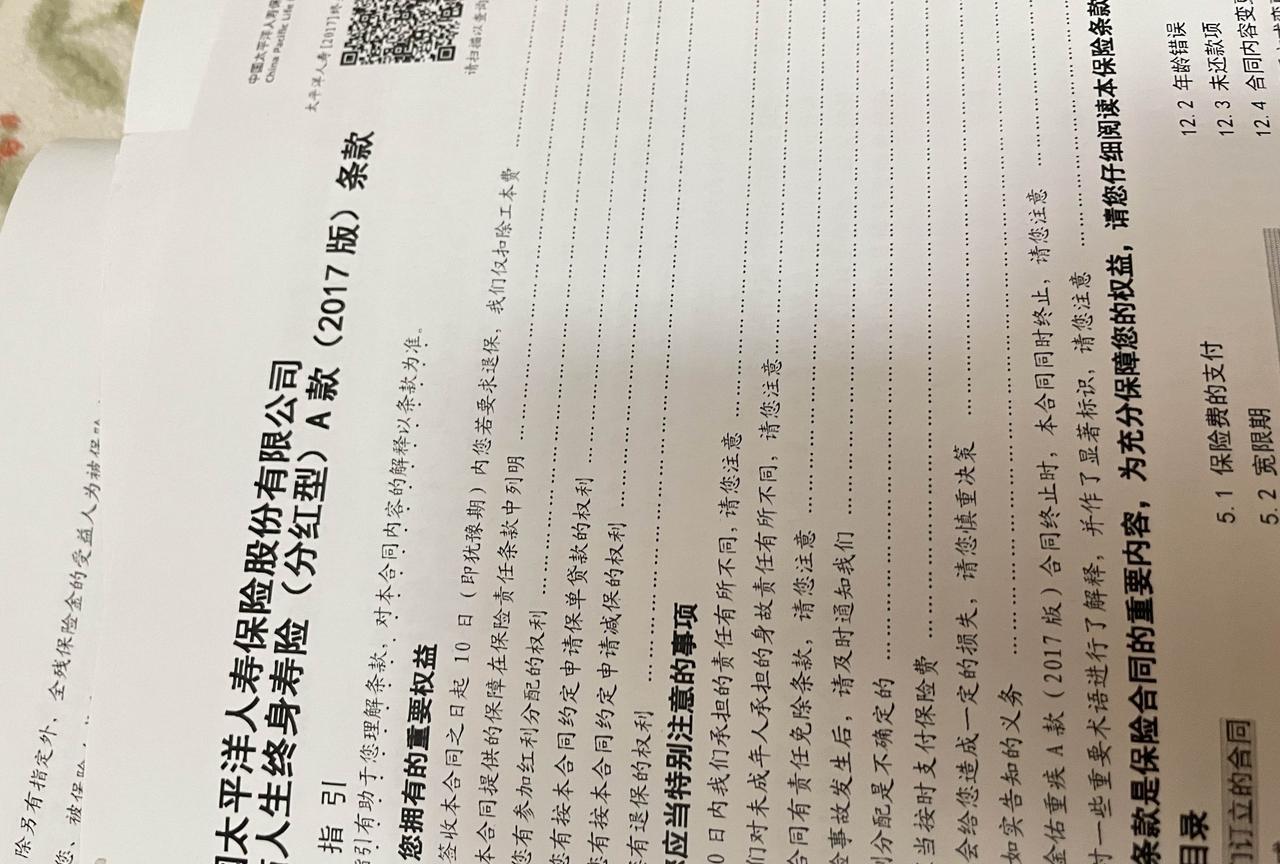 除另有指定外，全残保险金的受益人为被保
您、被保险
中国太平洋人寿保
China Pacific Life
太平洋人寿[2017]终
请扫描以查询
太平洋人寿保险股份有限公司
人生终身寿险（分红型）A 款（2017 版）条款
指 引
指引有助于您理解条款，对本合同内容的解释以条款为准。
您拥有的重要权益
签收本合同之日起 10 日（即犹豫期）内您若要求退保，我们仅扣除工本费
本合同提供的保障在保险责任条款中列明
您有参加红利分配的权利
您有按本合同约定申请保单贷款的权利
您有按本合同约定申请减保的权利
您有退保的权利
您应当特别注意的事项
0 日内我们承担的责任有所不同，请您注意
们对未成年人承担的身故责任有所不同，请您注意
合同有责任免除条款，请您注意
险事故发生后，请及时通知我们
利分配是不确定的
当按时支付保险费
会给您造成一定的损失，请您慎重决策
如实告知的义务
金佑重疾 A 款（2017 版）合同终止时，本合同同时终止，请您注意
对一些重要术语进行了解释，并作了显著标识，请您注意
条款是保险合同的重要内容，为充分保障您的权益，请您仔细阅读本保险条款
目录
们订立的合同
5.1 保险费的支付
5.2 宽限期
12.2 年龄错误
12.3 未还款项
12.4 合同内容变